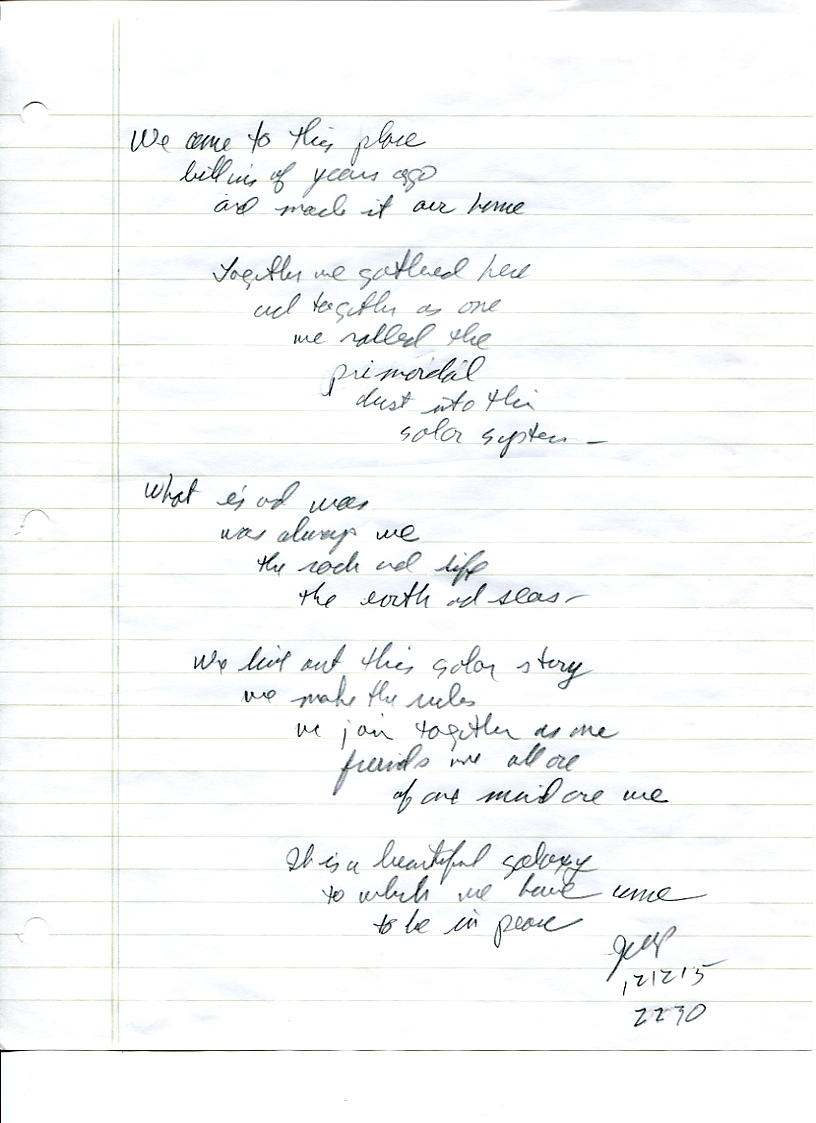 We came to this place
billions of years ago
and made it our home
Together we gathered here
and together as one
we rolled the
primordial
dust into this
solar system —
What is and was
was always we
the rock and life
the earth and seas —
We live out this solar story
we make the rules
we join together as one
friends we all are
of one mind are we
It is a beautiful galaxy
to which we have come
to be in peace
121215
2230